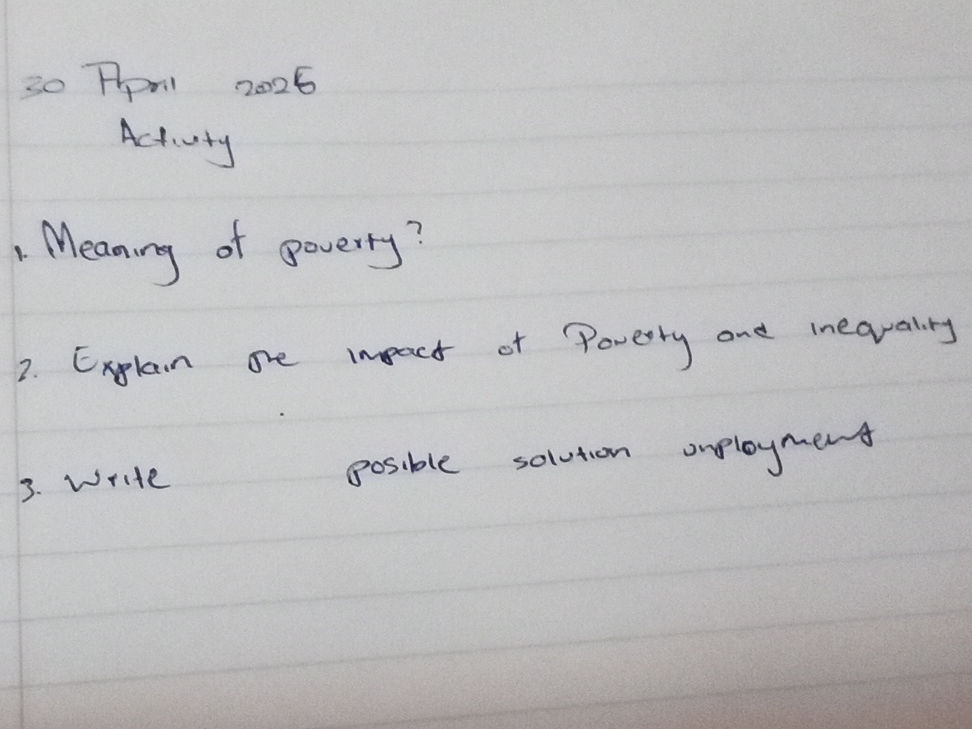 30 April 2026
Activity
1. Meaning of poverty?
2. Explain the impact of Poverty and inequality
3. Write posible solution unployment